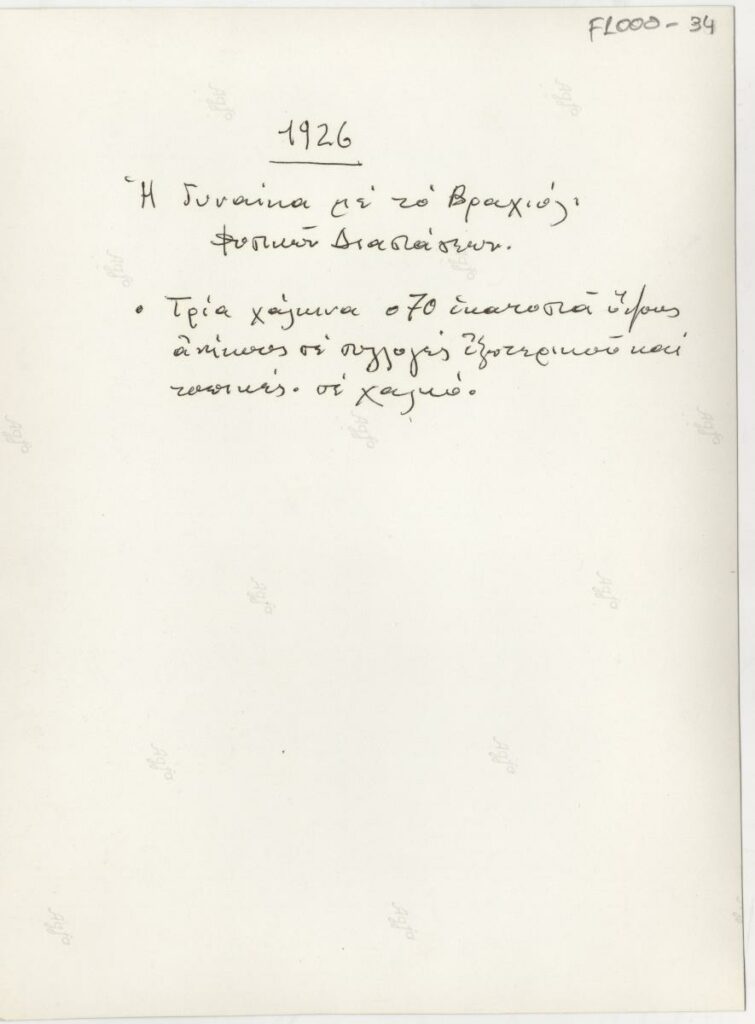 FLOOD - 34
1926
Ἡ Γυναίκα μέ τό Βραχιόλι
Φυσικῶν Διαστάσεων.
• Τρία χάλκινα 0,70 ἑκατοστά ὕψους
ἀνήκουν σέ συλλογές ἐξωτερικοῦ καί
τοπικές. σέ χαλκό.